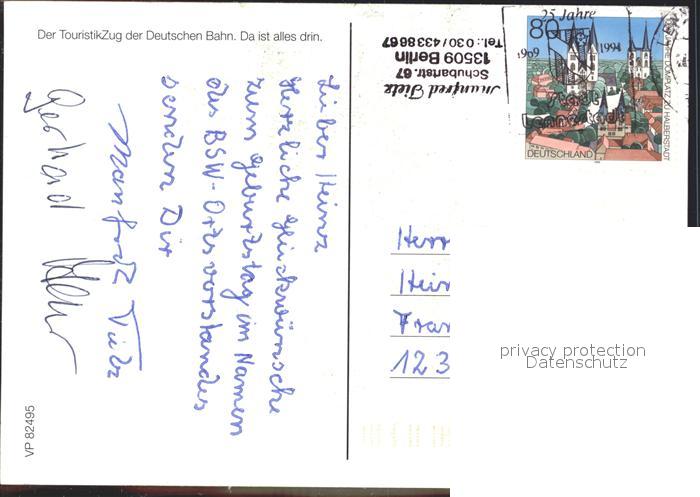 Der TouristikZug der Deutschen Bahn. Da ist alles drin.
Lieber Heinz
Herzliche Glückwünsche
zum Geburtstag im Namen
des BSW-Ortsvorstandes
senden Dir
Manfred
Gerhard
VP 82495
Manfred
Schubartstr. 67
13509 Berlin
Tel.: 030 / 433 88 67
25 Jahre
1969 1994
80
DOMPLATZ ZU HALBERSTADT
DEUTSCHLAND
Herr
Hein
Fran
123
privacy protection
Datenschutz